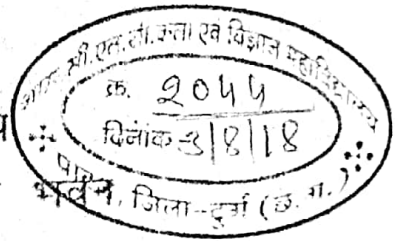 सी.एल.सी. कला एवं विज्ञान महाविद्यालय
क्र. 2044
दिनांक 3/8/18
भवन, जिला-दुर्ग (छ.ग.)